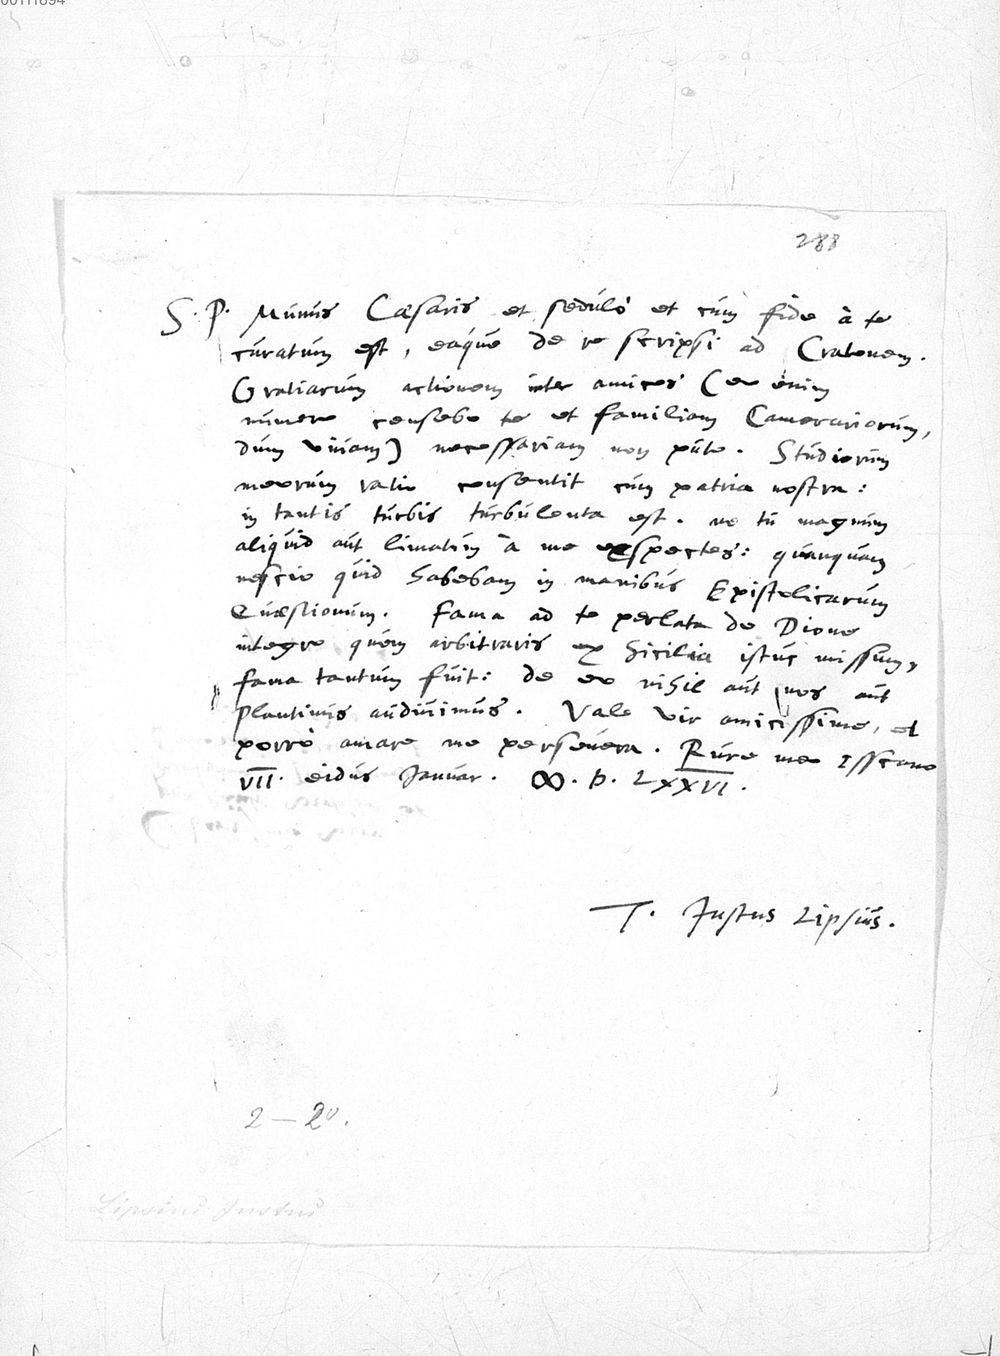 288
S. P. Munus Cæsaris et seduló et cum fide à te
curatum est, eaque de re scripsi ad Cratonem.
Gratiarum actionem inter amicos (eo enim
numero censebo te et familiam Camerariorum,
dum vivam) necessariam non puto. Studiorum
meorum ratio consentit cum patria nostra:
in tantis turbis turbulenta est. ne tu magnum
aliquid aut limatum à me exspectes: quamquam
nescio quid habebam in manibus Epistolicarum
Quæstionum. Fama ad te perlata de Dione
integro quem arbitraris ex Sicilia istuc missum,
fama tantum fuit: de eo nihil aut nos aut
Plantinus audivimus. Vale vir amicissime, et
porrò amare me persevera. Rure meo Isscano
VII. eidus Januar. ꝏ. D. LXXVI.
T. Justus Lipsius.
2 — 20.
Lipsius Justus